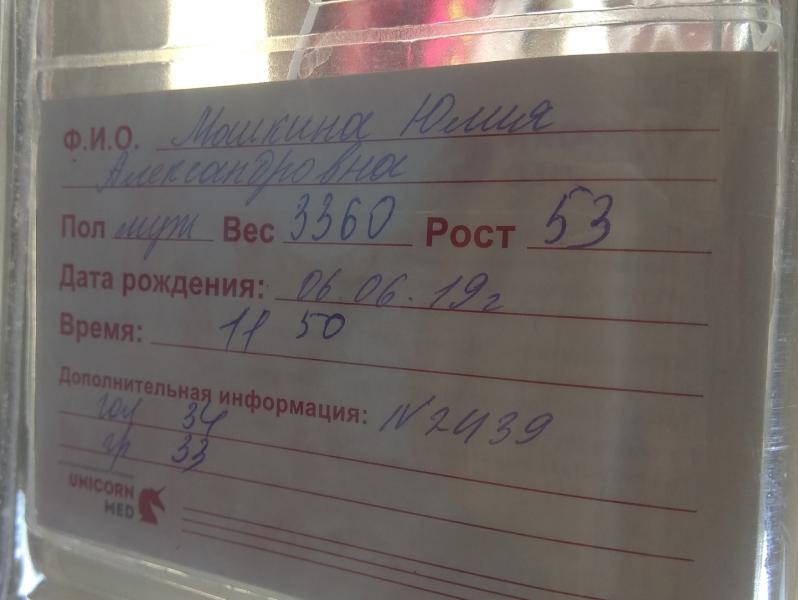 Ф.И.О. Машкина Юлия
Александровна
Пол муж Вес 3360 Рост 53
Дата рождения: 06.06.19г
Время: 11 50
Дополнительная информация: N2439
гол 34
гр 33
UNICORN
MED